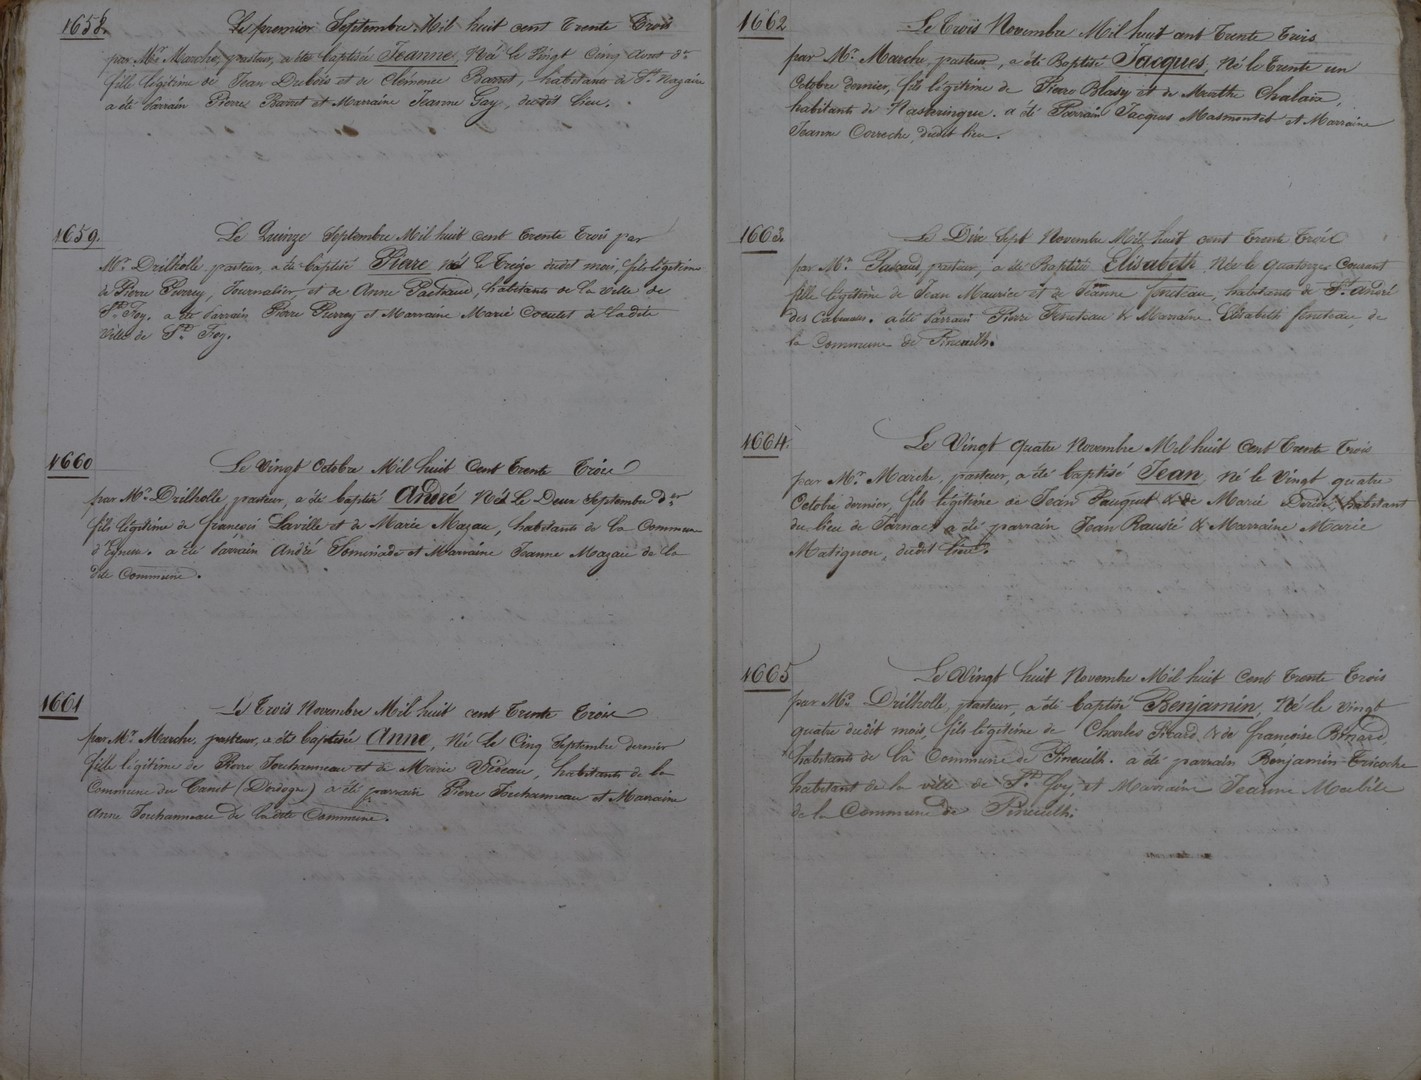 1658. Le premier Septembre Mil huit cent trente Trois
par Mr. Marche, pasteur, a été baptisée Jeanne, Née le Vingt Cinq Aout dr.
fille légitime de Jean Dubois et de Clémence Barret, habitants de St. Nazaire
a été Parrain Pierre Barret et Marraine Jeanne Gay, dudit lieu.
1659. Le Quinze Septembre Mil huit cent trente Trois par
Mr. Drilholle, pasteur, a été baptisé Pierre né le Treize dudit mois, fils légitime
de Pierre Pierrey, Journalier, et de Anne habitants de la Ville de
Ste. Foy. a été Parrain Pierre et Marraine Marie de ladite
Ville de Ste. Foy.
1660 Le Vingt Octobre Mil huit Cent trente Trois
par Mr. Drilholle, pasteur, a été baptisé André Né Le Deux Septembre dr.
fils légitime de françois Laville et de Marie Mazau, habitants de la Commune
d'Eynesse. a été Parrain André et Marraine Jeanne Mazau de la
dite Commune.
1661 Le Trois Novembre Mil huit cent Trente Trois
par Mr. Marche, pasteur, a été baptisée Anne, Née Le Cinq Septembre dernier
fille légitime de Pierre Jouhanneau et de Marie Videau, habitants de la
Commune du Canet (Dordogne) a été parrain Pierre Jouhanneau et Marraine
Anne Jouhanneau de ladite Commune.
1662 Le Trois Novembre Mil huit cent Trente Trois
par Mr. Marche, pasteur, a été Baptisé Jacques, Né le Trente un
Octobre dernier, fils légitime de Pierre Blasy et de Marthe
habitants de Nastringue. a été Parrain Jacques Masmontet et Marraine
Jeanne Correche, dudit lieu.
1663. Le Dix Sept Novembre Mil huit cent trente Trois
par Mr. pasteur, a été Baptisée Elisabeth Née le quatorze Courant
fille légitime de Jean Maurice et de Jeanne feneteau, habitants de St. André
des Cabauses. a été Parrain Pierre feneteau & Marraine Elisabeth feneteau, de
la Commune de Pineuilh.
1664. Le Vingt quatre Novembre Mil huit Cent Trente Trois
par Mr. Marche, pasteur, a été baptisé Jean, né le Vingt quatre
Octobre dernier, fils légitime de Jean Pauquet & de Marie habitant
du lieu de a été parrain Jean & Marraine Marie
Matignon, dudit lieu.
1665 Le Vingt huit Novembre Mil huit Cent Trente Trois
par Mr. Drilholle, pasteur, a été baptisé Benjamin, Né le Vingt
quatre dudit mois, fils légitime de Charles Picard, & de françoise
habitants de la Commune de Pineuilh. a été parrain Benjamin Tricoche
habitant de la ville de Ste. Foy, et Marraine Jeanne
de la Commune de Pineuilh.